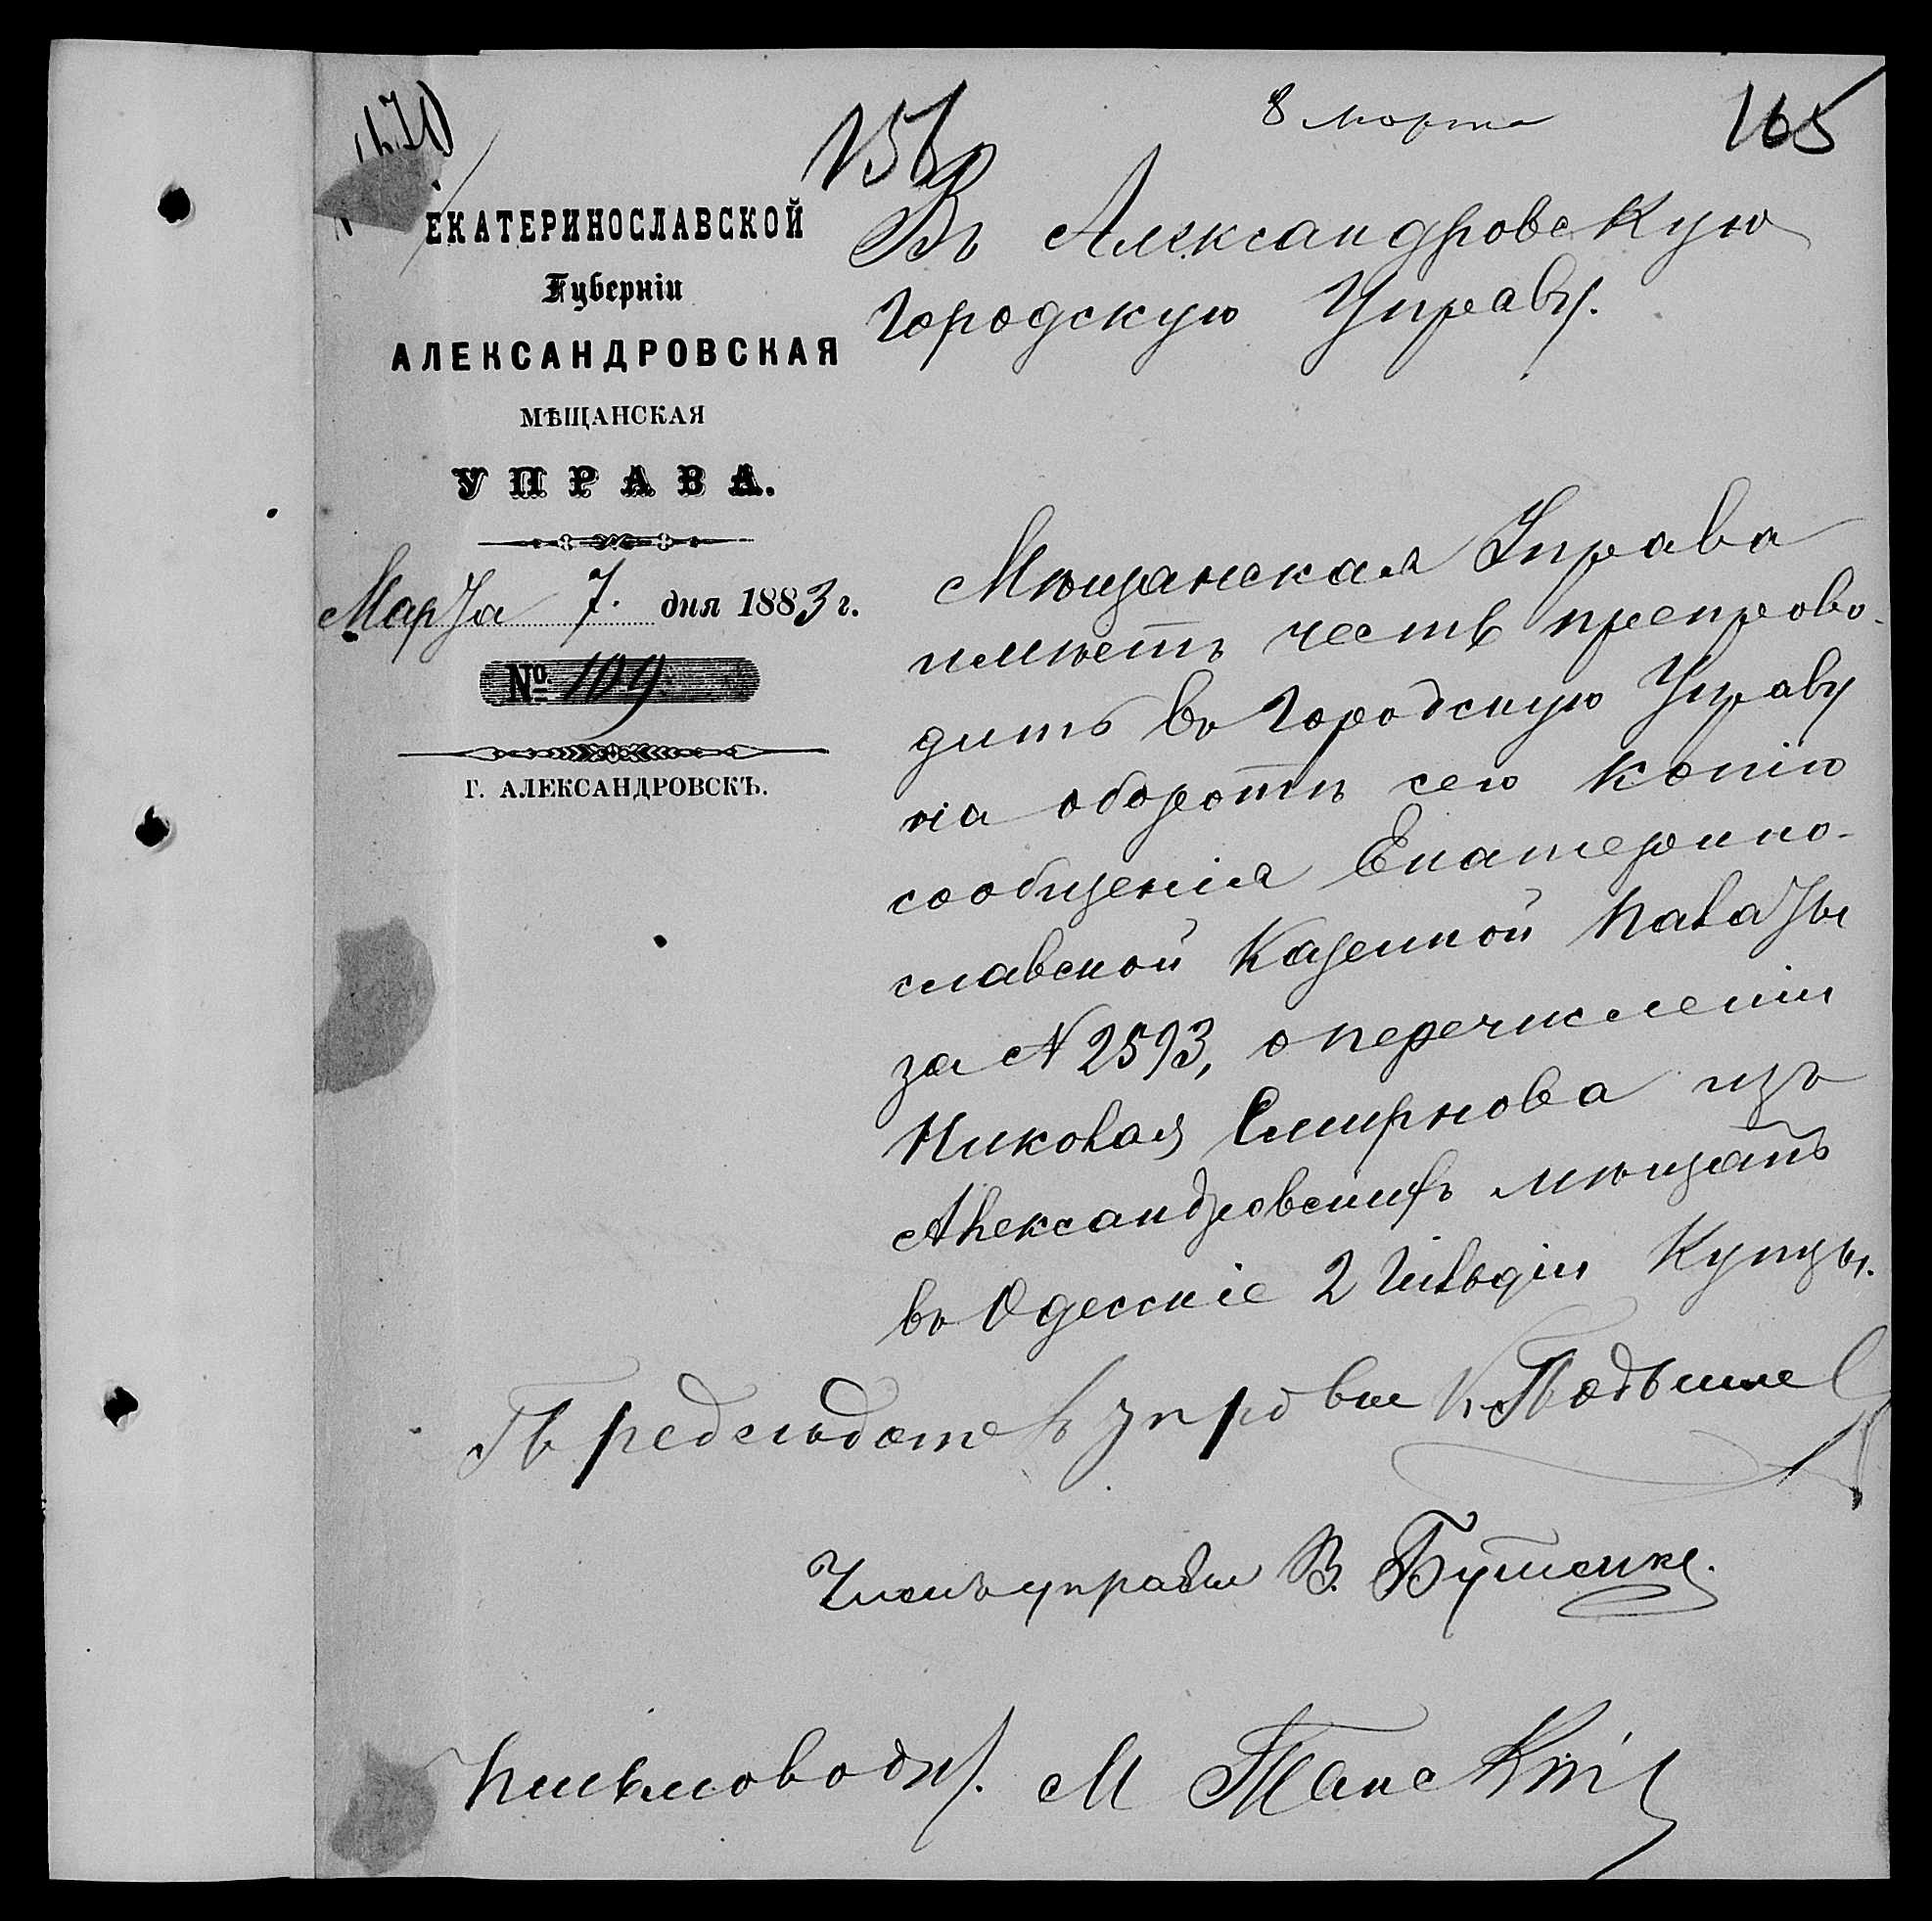 8 марта
165
ЕКАТЕРИНОСЛАВСКОЙ
Губерніи
АЛЕКСАНДРОВСКАЯ
МѢЩАНСКАЯ
УПРАВА.
Марта 7. дня 1883 г.
№ 109
Г. АЛЕКСАНДРОВСКЪ.
Въ Александровскую
Городскую Управу.
Мѣщанская Управа
имѣетъ честь препрово-
дить въ Городскую Управу
на оборотѣ сего копію
сообщенія Екатерино-
славской Казенной Палаты
за № 2593, о перечисленіи
Николая Смирнова изъ
Александровскихъ мѣщанъ
въ Одесскіе 2 Гильдіи Купцы.
Предсѣдатель управы К.
Членъ управы В. Бутенко.
Письмовод. М Танскій